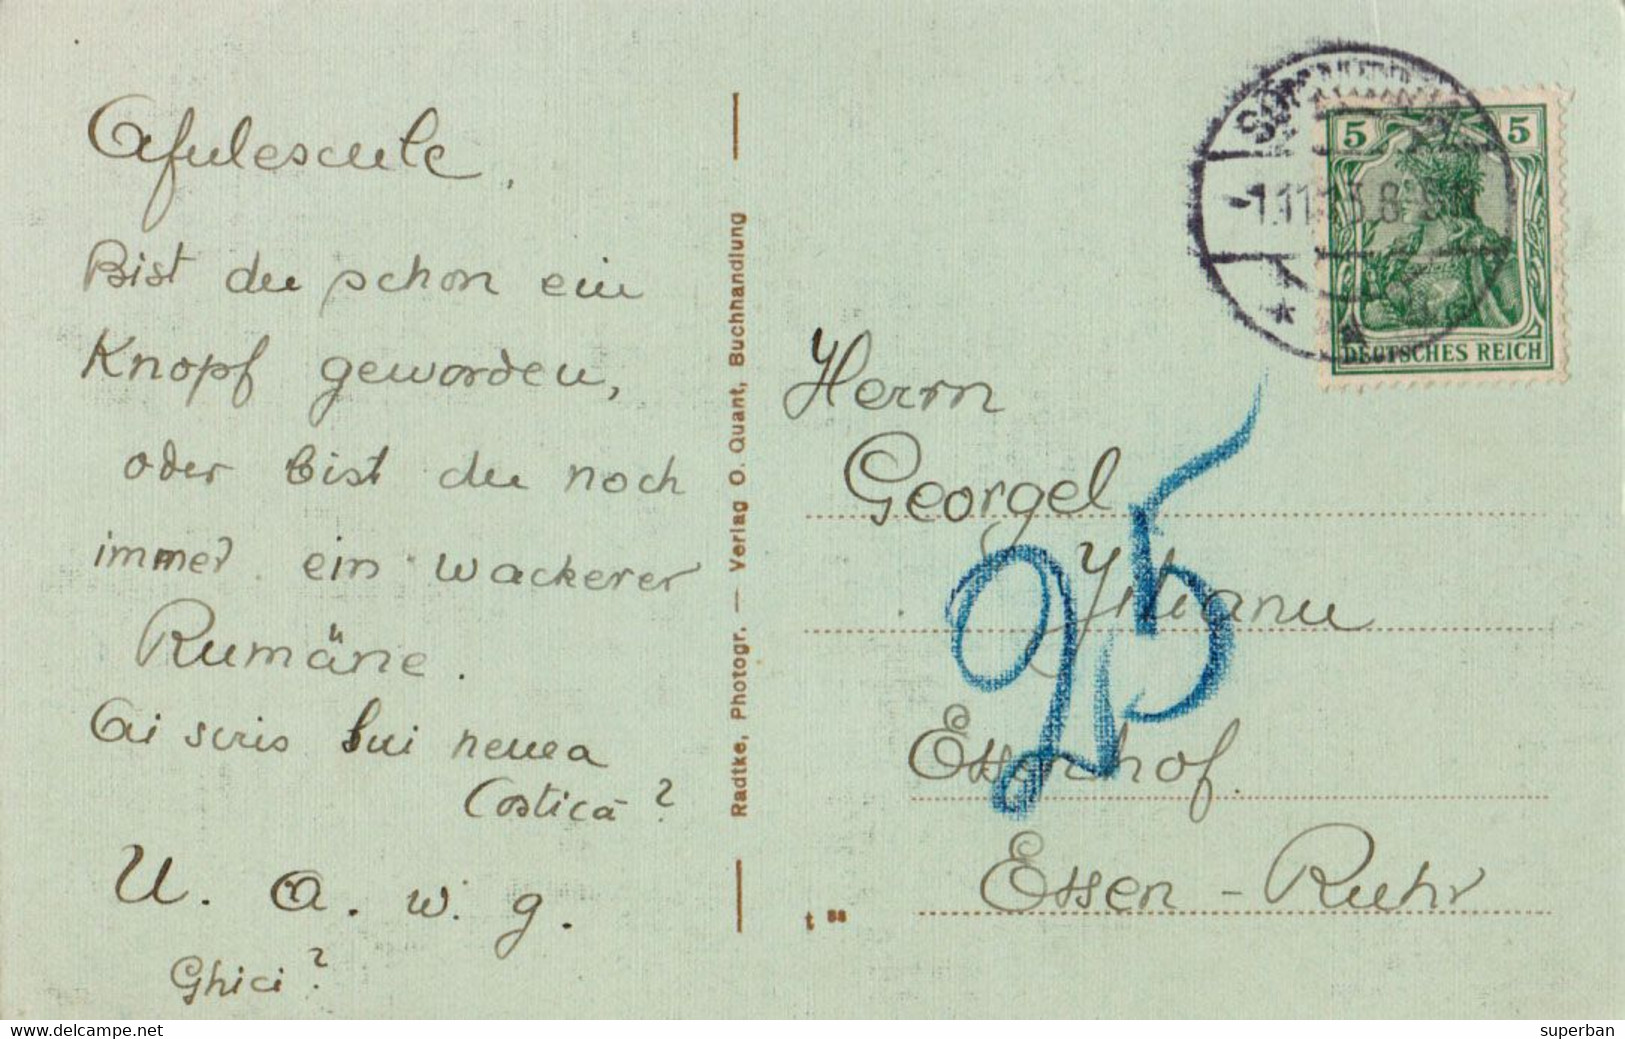 Afulescule,
Bist du schon ein
Knopf geworden,
oder bist du noch
immer ein wackerer
Rumäne.
Ai scris lui nenea
Costică?
U. A. w. g.
Ghici?
Radtke, Photogr. — Verlag O. Quant, Buchhandlung
t 88
5 5
DEUTSCHES REICH
Herrn
Georgel
25
Essenhof.
Essen - Ruhr
www.delcampe.net
superban